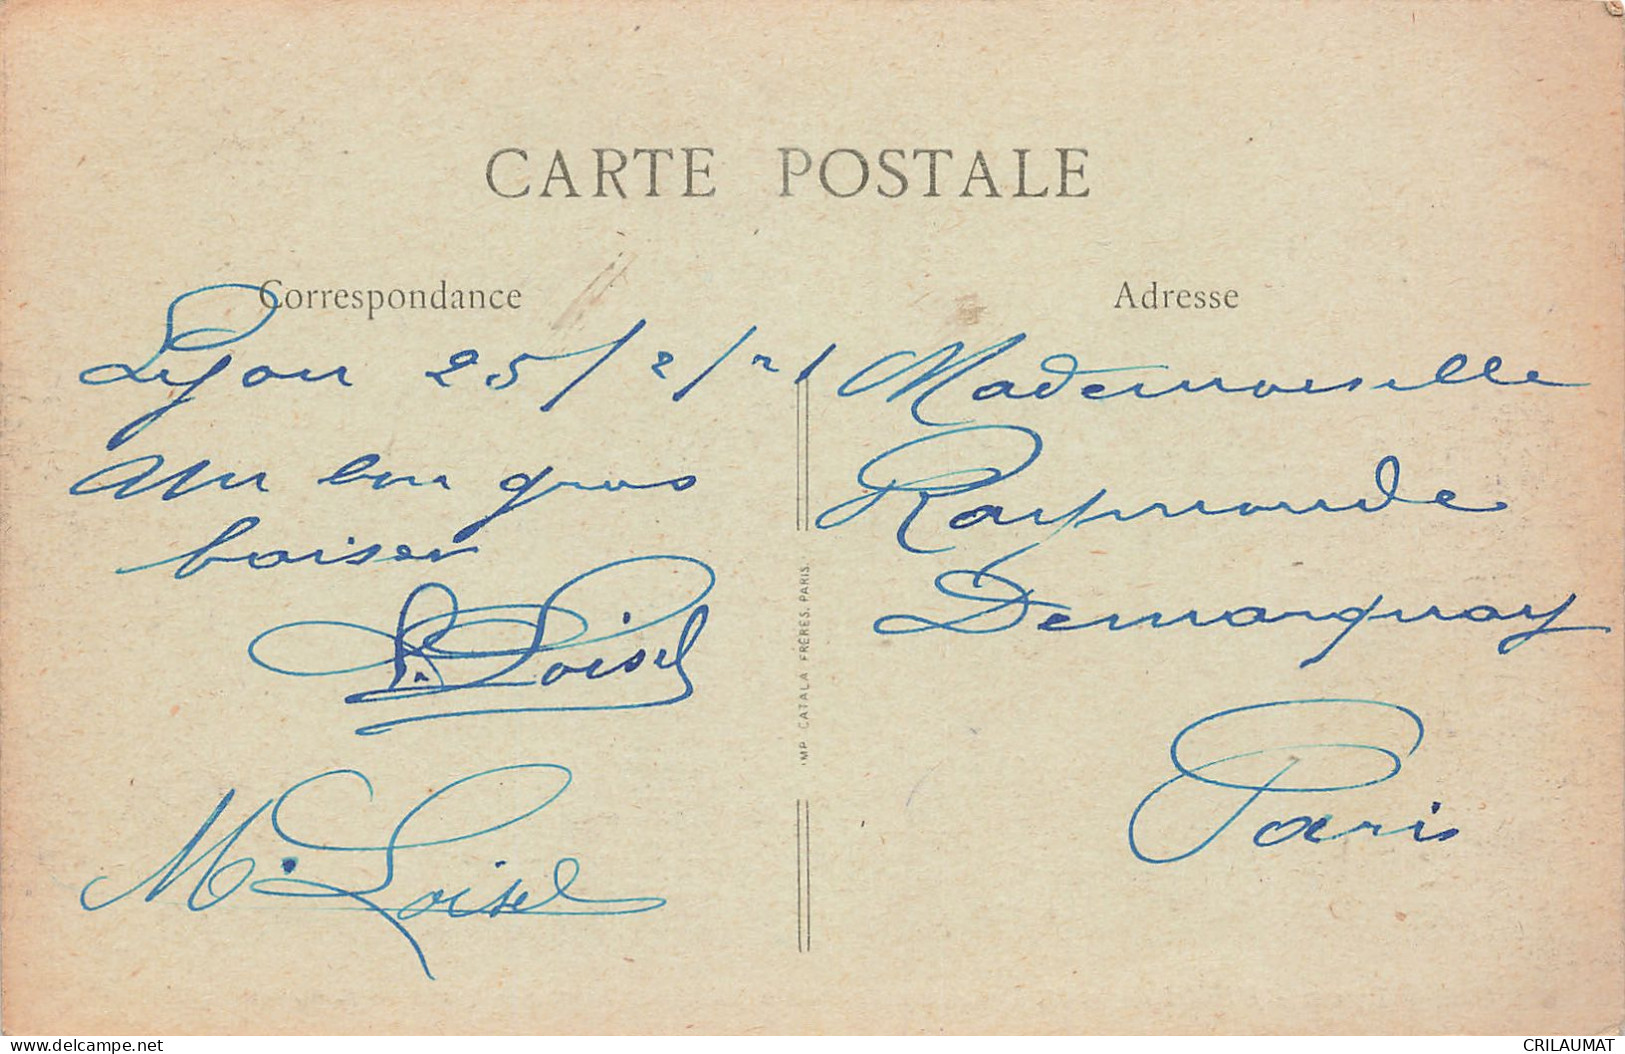 CARTE POSTALE
Correspondance
Lyon 25/2/21
un bon gros
baiser
Loisel
M. Loisel
IMP. CATALA FRÈRES. PARIS.
Adresse
Mademoiselle
Raymonde
Demarquay
Paris
www.delcampe.net
CRILAUMAT